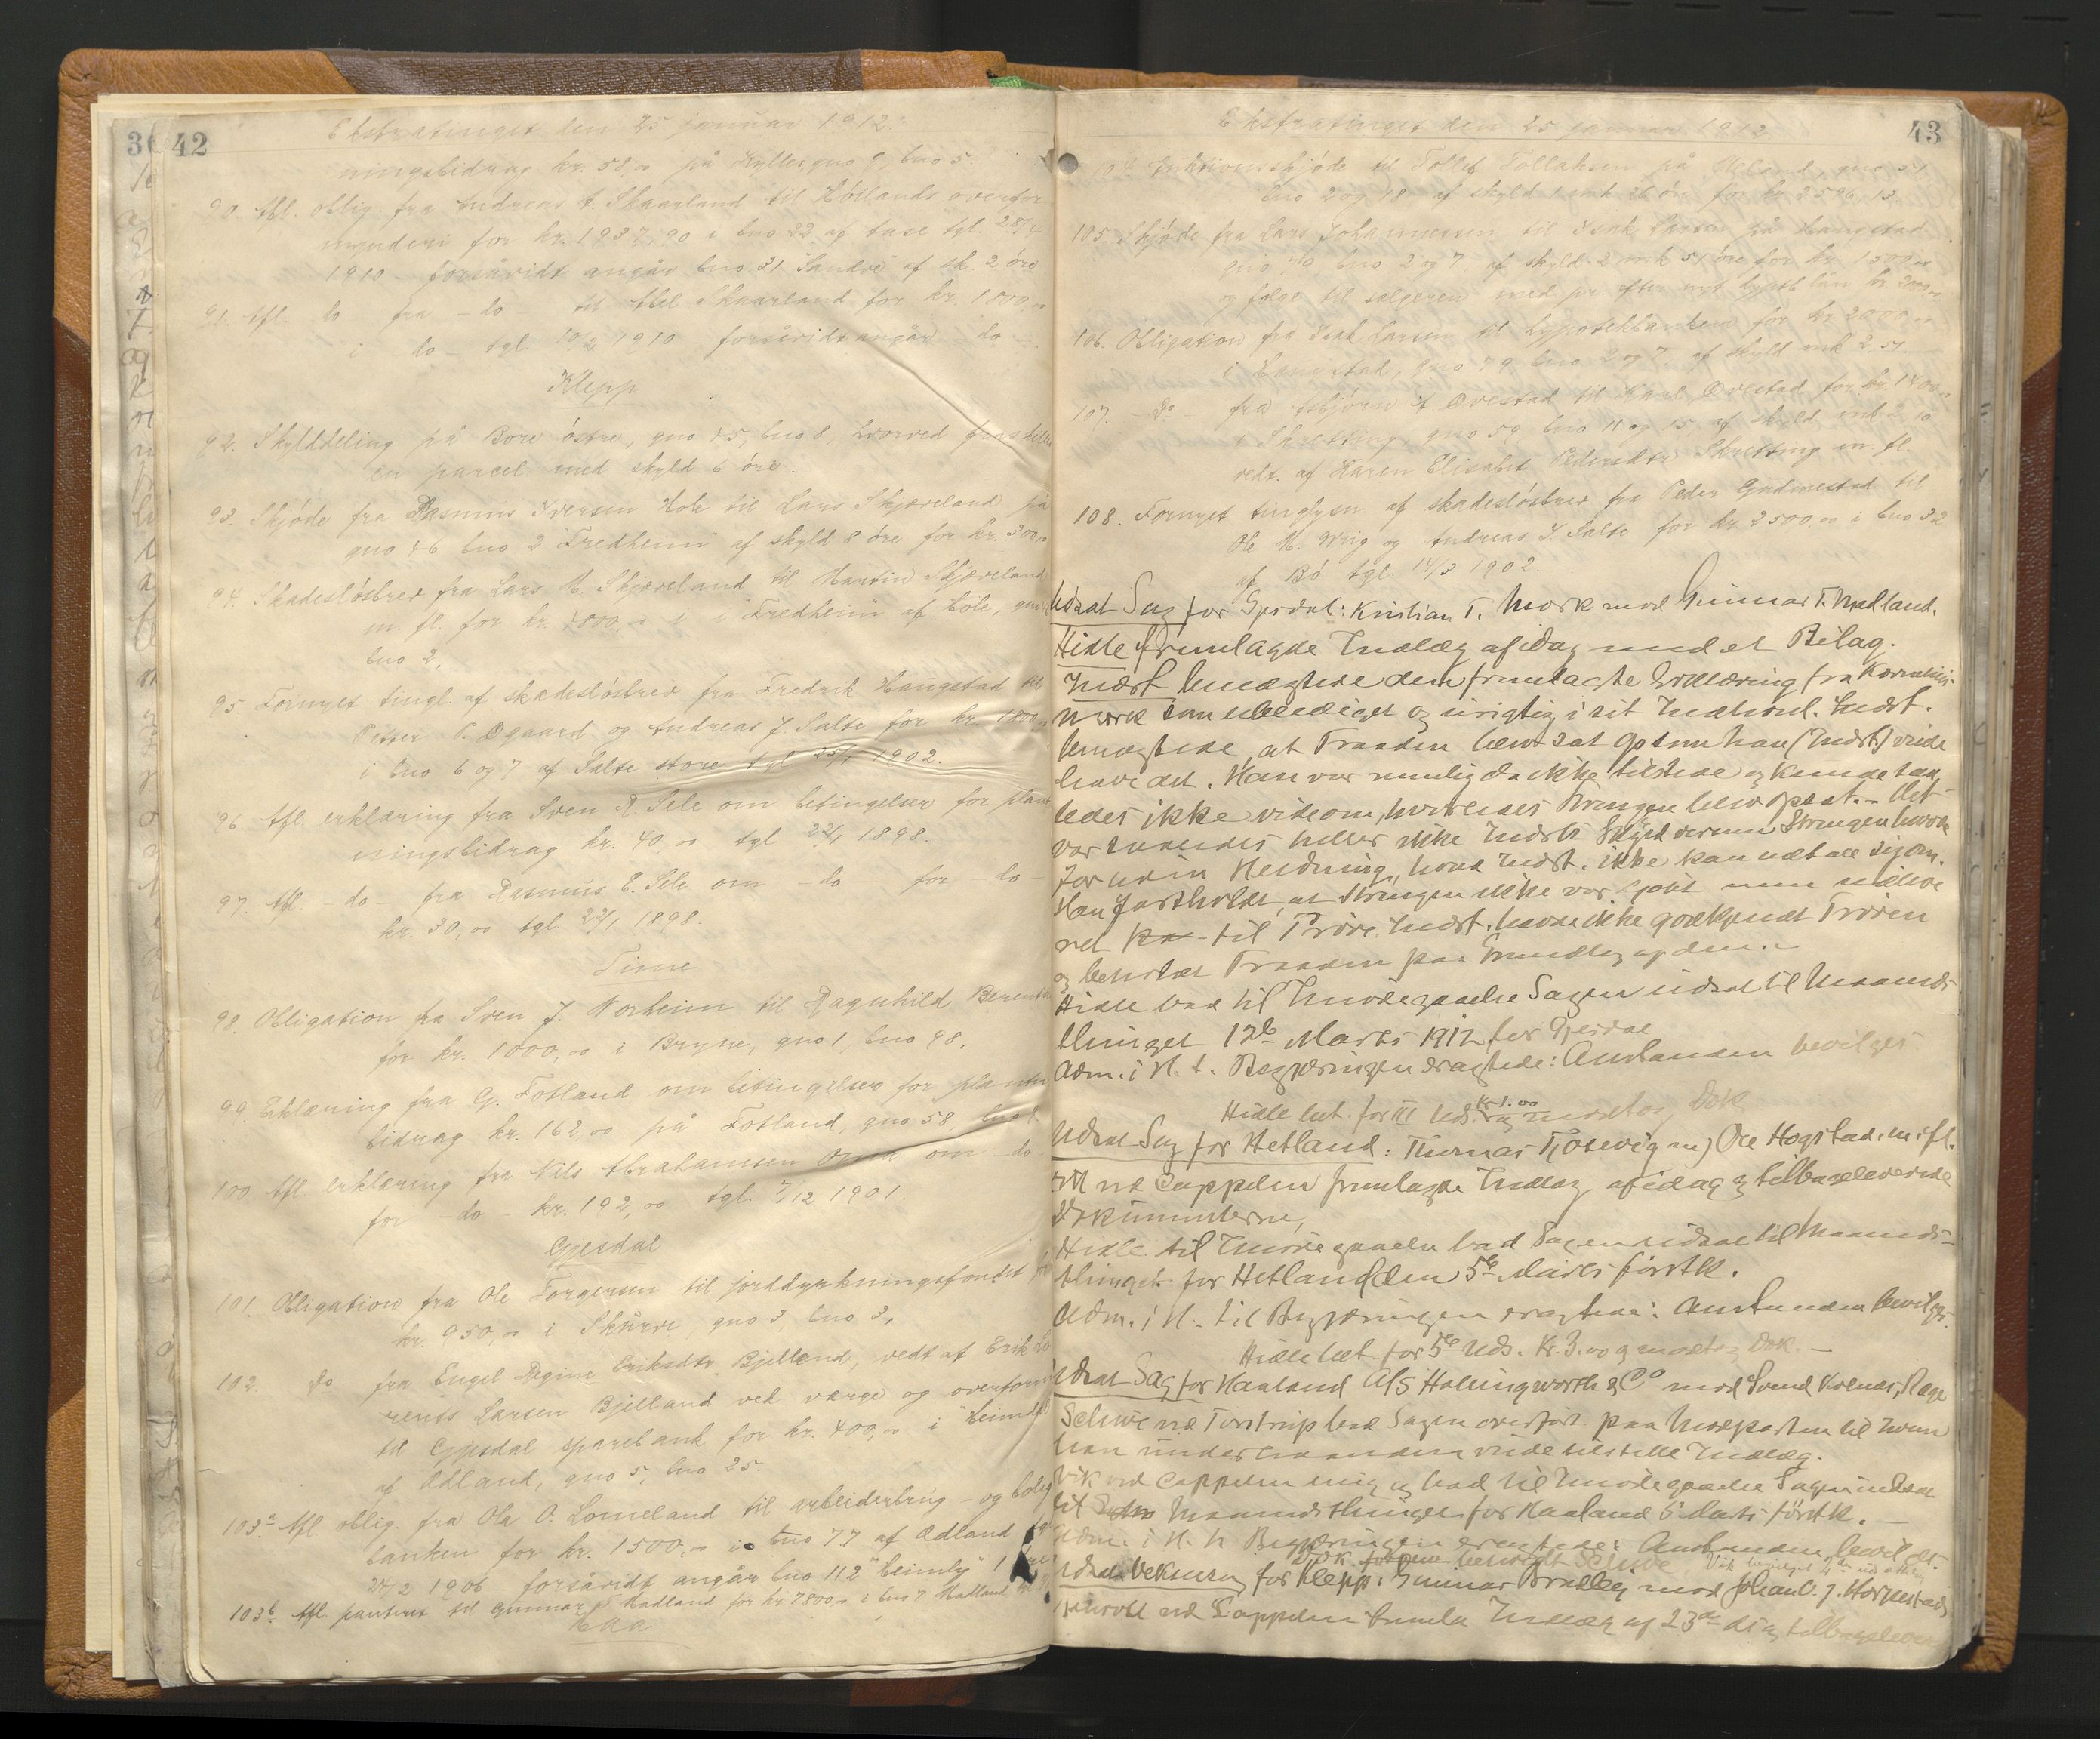 42
Ekstratinget den 25 januar 1912.
ningsbidrag kr. 58,00 på Kyllei, gno 9, bno 5.
90. Afl. oblig. fra Andreas A. Skaarland til Høilands overfor
mynderi for kr. 1937,90 i bno 22 af tgl. 28/4
1910 forsåvidt angår bno 31 "Sandve" af sk. 2 øre
91. Afl. do fra - do - til Abel Skaarland for kr. 1800,00
i do tgl. 10/2 1910 forsåvidt angår do
Klepp
92. Skylddeling på Bore østre, gno 15, bno 8, hvorved
en parcel med skyld 6 øre.
93. Skjøde fra Rasmus Iversen Hole til Lars Skjæveland på
gno 46 bno 2 "Fredheim" af skyld 8 øre for kr. 300,00
94. Skadesløsbrev fra Lars M. Skjæveland til Martin Skjæveland
m. fl. for kr. 4000,00 i "Fredheim" af Hole, gno
bno 2.
95. Fornyet tingl. af skadesløsbrev fra Fredrik Haugstad til
Petter P. Øgaard og Andreas J. Salte for kr. 1800,00
i bno 6 og 7 af Salte store tgl 1902.
96. Afl erklæring fra Sven R. Sele om betingelser for plant
ningsbidrag kr. 40,00 tgl 22/1 1898.
97. Afl. - do - fra Rasmus E. Sele om - do - for - do -
kr. 30,00 tgl. 22/1 1898.
Time
98. Obligation fra Sven J. Norheim til Ragnhild
for kr. 1000,00 i Bryne, gno 1, bno 98.
99. Erklæring fra G. Fotland om betingelser for plantn
bidrag kr. 162,00 på Fotland, gno 58,
100. Afl erklæring fra Nils Abrahamsen Oma om - do -
for - do - kr. 192,00 tgl. 7/12 1901.
Gjesdal
101. Obligation fra Ole Torgersen til jorddyrkningsfondet
kr. 950,00 i Skurve, gno 3, bno 3,
102. Do fra Engel Regine Eriksdtr. Bjelland, vedt af Erik
Larsen Bjelland ved værge og overform
til Gjesdal sparebank for kr. 400,00 i "Heimdal"
af Ådland, gno 5, bno 25.
103a Afl oblig. fra Ola O. Lomeland til arbeiderbrug - og bolig
banken for kr. 1500,00 i bno 77 af Ådland
24/2 1906 forsåvidt angår bno 112 "Heimly"
103b. Afl. panteret til Gunnar Madland for kr. 7800,00 i bno 7 Madland
Haa
43
Ekstratinget den 25 januar 1912
104. Auktionsskjøde til Tollef Tollaksen på gno 31
bno 2 og 18 af skyld 1 mk 26 øre for kr 2596,13.
105. Skjøde fra Lars Johannessen til Isak Larsen på Haugstad
gno 49, bno 2 og 7 af skyld 2 mk 51 øre for kr. 1500,00
og følge til sælgeren med pr. efter nyt hypotb lån kr 2000,00
106. Obligation fra Isak Larsen til hypotekbanken for kr 2000,00
i Haugstad, gno 49, bno 2 og 7, af skyld mk 2,51.
107. - Do - fra Asbjørn A Ovestad til Karl Ovestad for kr. 1400,00
i Skretting, gno 59 bno 11 og 15 af skyld mk 2,10
vedt. af Karen Elisabet Pedersdtr Skretting m. fl.
108. Fornyet tinglysn. af skadesløsbrev fra Peder Gudmestad til
Ole M. Wiig og Andreas J Salte for kr. 2500,00 i bno 32
af Bø tgl. 14/3 1902.
Udsat Sag for Gjesdal: Kristian T. Mork mod Gunnar T. Madland.
Hidle fremlagde Indlæg af idag med et Bilag.
Indst. benægtede den fremlagte Erklæring fra Kornelius
Mork som ubeediget og urigtig i sit Indhold. Indst.
benægtede, at Traaden blev sat op som han (Indst) vilde
have det. Han var nemlig da ikke tilstede og kunde saa-
ledes ikke vide om, hvorledes Strengen blev opsat. - Det
var saaledes heller ikke Indsts Skyld derom Strengen havde
for liden Heldning, hvad Indst. ikke kan udtale sig om.
Han fastholdt, at Strengen ikke var kjøbt men udleve-
ret til Prøve. Indst. havde ikke godkjendt Prøven
og beholdt Traaden paa Grundlag af den. -
Hidle bad til Imødegaaelse Sagen udsat til Maaneds-
thinget 12te Marts 1912 for Gjesdal
Adm. i H. t. Begjæringen eragtede: Anstanden bevilges
Hidle bet. for III Uds. Kr 1.00 og modtog Dok
Udsat Sag for Hetland: Thomas Tjosevig m) Ole Hogstad m. fl.
ved Cappelen fremlagde Indlæg af idag og tilbageleverede
Dokumenterne,
Hidle til Imødegaaelse bad Sagen udsat til Maaneds-
thinget for Hetland den 5te Marts førstk.
Adm. i H. til Begjæringen eragtede: Anstanden bevilges.
Hidle bet. for 5te Uds. Kr. 3.00 og modtog Dok. -
Udsat Sag for Haaland A/S Hollingworth & Co mod Svend Volnes, Rege
Schive ved Torstrup bad Sagen overført paa Modparten til hvem
han underhaanden vilde tilstille Indlæg.
Vik ved Cappelen enig og bad til Imødegaaelse Sagen udsat
til Maanedsthinget for Haaland 5 Marts førstk. -
Adm. i H. t. Begjæringen eragtede: Anstanden bevilget.
Dok. beholdt Schive.
Udsat Vekselsag for Klepp: Gunnar Bratley mod Johan B. J. Horpestad
ved Cappelen fremla Indlæg af 23de ds og tilbageleve